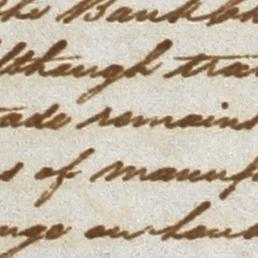 the Bank
although tra
ade remains
s of manuf
nge on hand